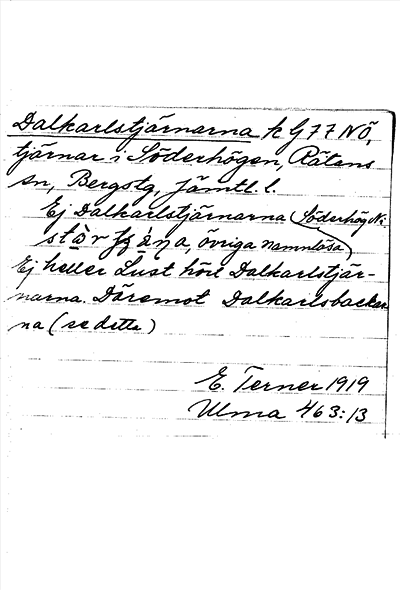 Dalkarlstjärnarna k G 77 NÖ,
tjärnar i Söderhögen, Rätans
sn, Bergs tg, Jämtl. l.
Ej Dalkarlstjärnarna (Söderhög
övriga namnlösa)
Ej heller Lust hört Dalkarlstjär-
narna. Däremot Dalkarlsbackar-
na (se detta)
E. Terner 1919
Ulma 463:13